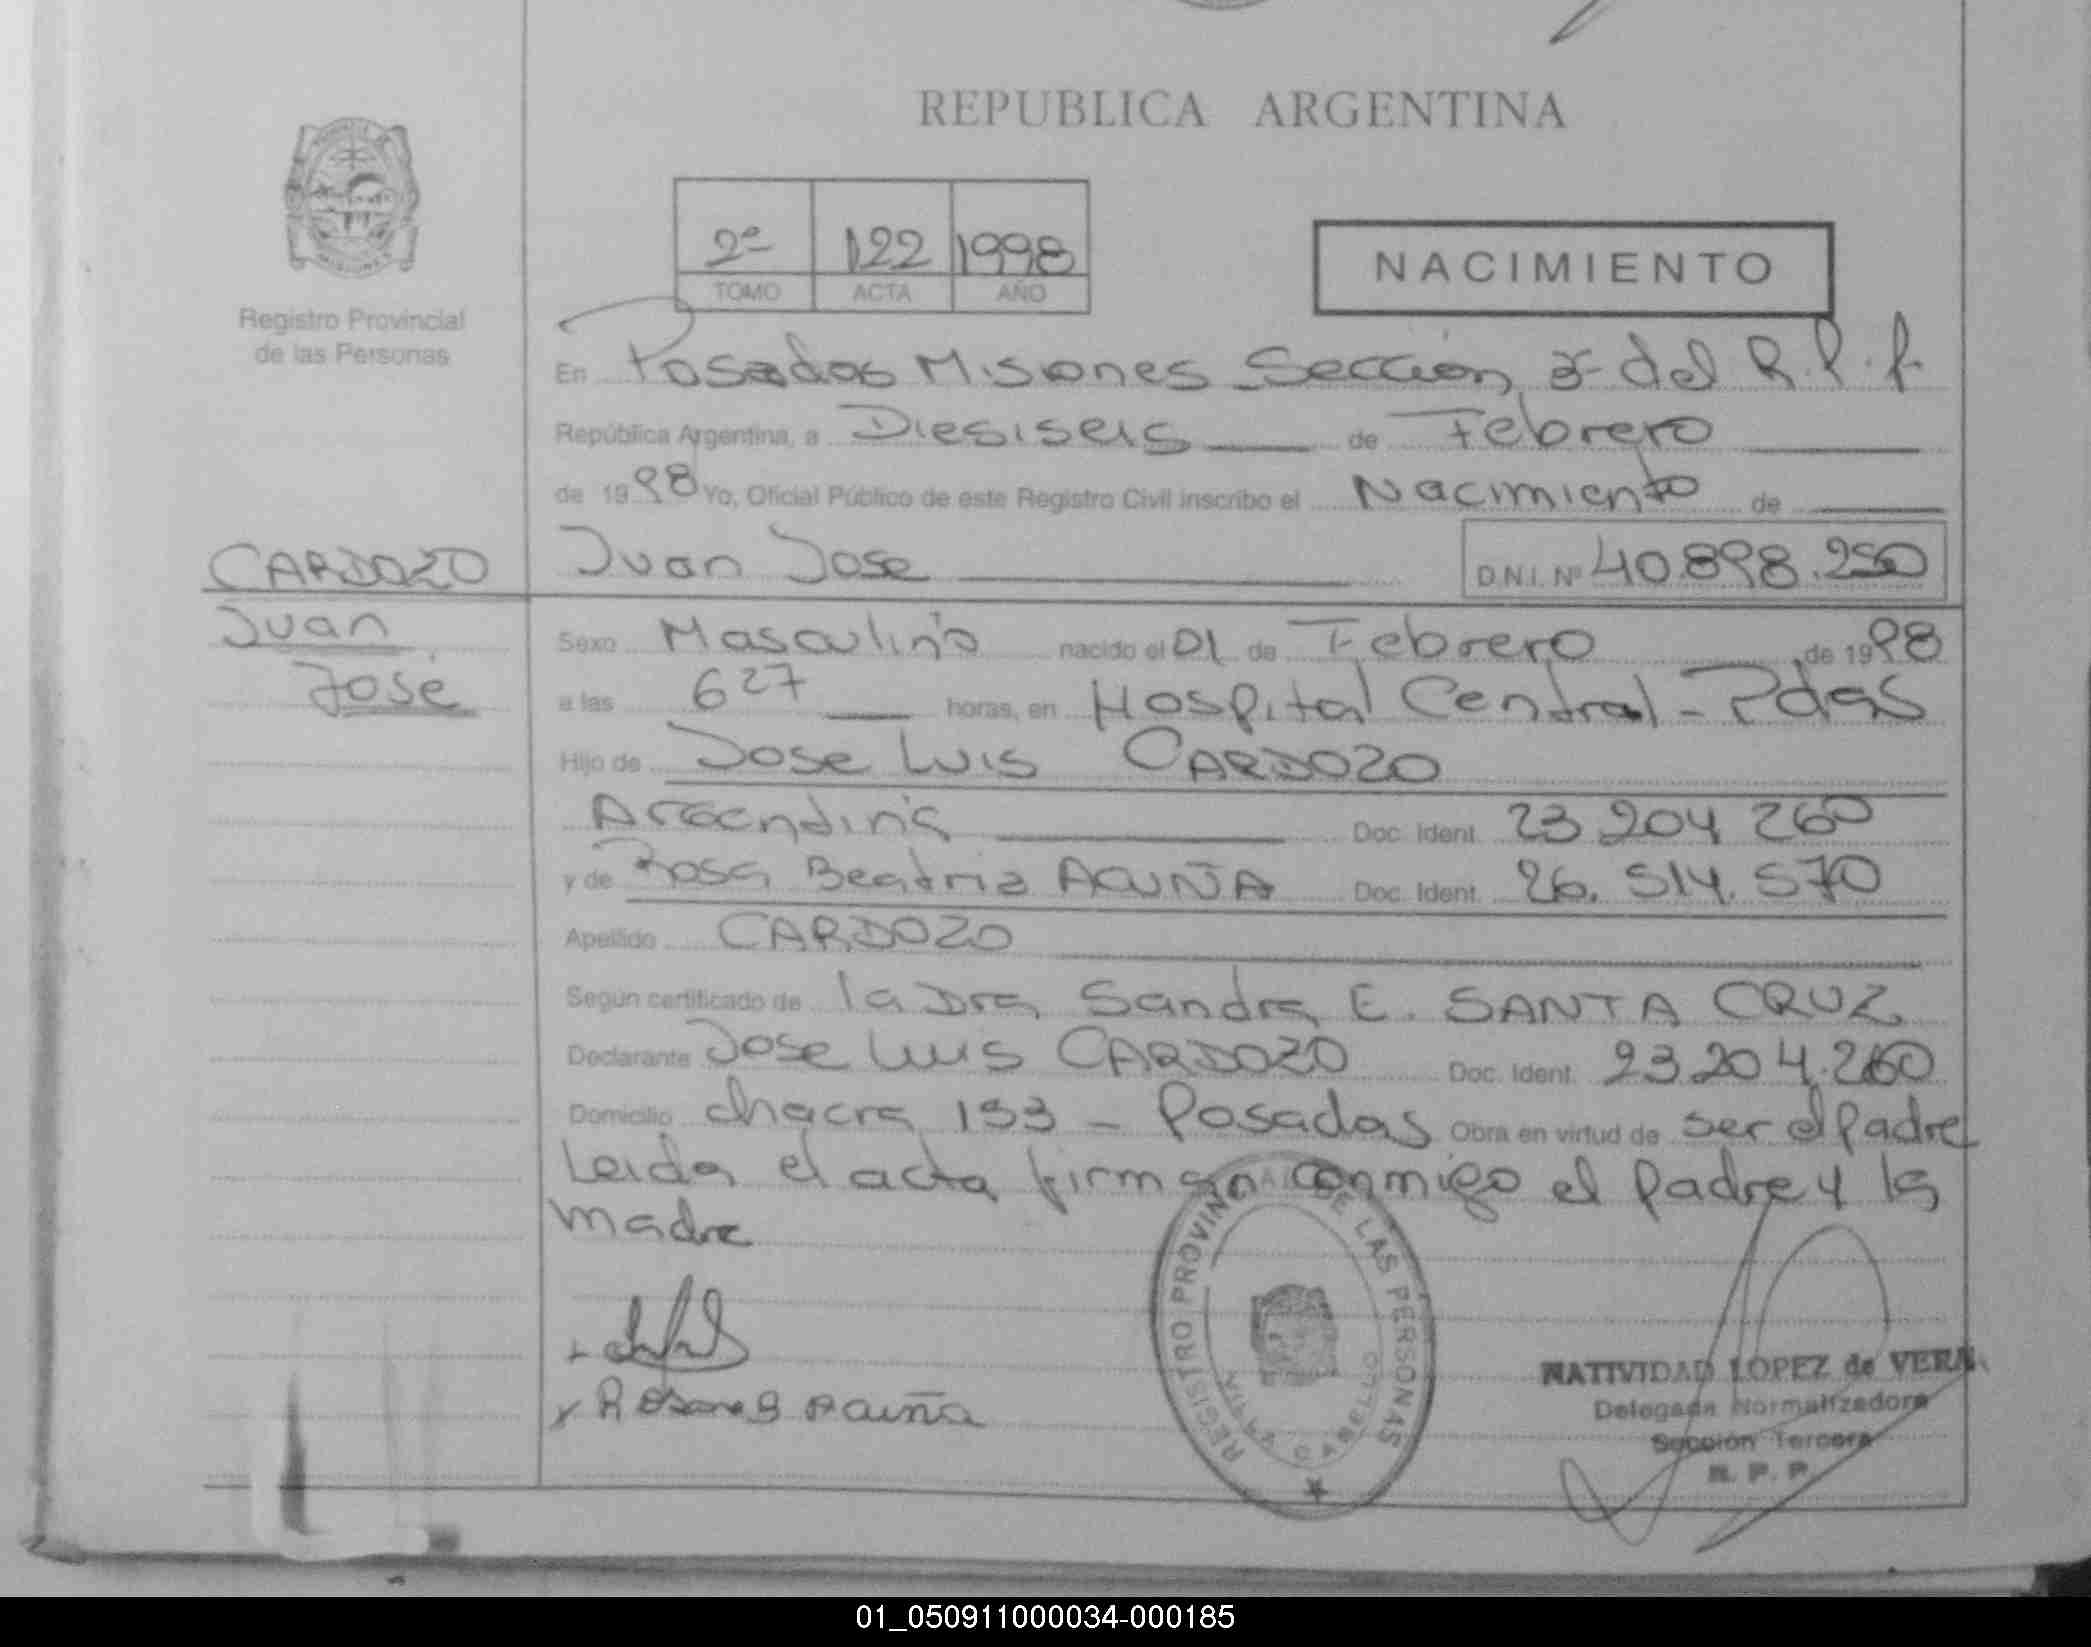 REPUBLICA ARGENTINA
2º 122 1998
TOMO ACTA AÑO
NACIMIENTO
MISIONES
Registro Provincial
de las Personas
En Posadas Misiones Sección 3º del R.P.P.
República Argentina, a Diesiseis de Febrero
de 1998 Yo, Oficial Público de este Registro Civil inscribo el Nacimiento de
CARDOZO
Juan
José
Juan Jose D.N.I. Nº 40.898.250
Sexo Masculino nacido el 01 de Febrero de 1998
a las 627 horas, en Hospital Central - Pdas
Hijo de Jose Luis CARDOZO
Argentina Doc. Ident. 23 204 260
y de Rosa Beatriz ACUÑA Doc. Ident. 26.514.570
Apellido CARDOZO
Según certificado de la Dra Sandra E. SANTA CRUZ
Declarante Jose Luis CARDOZO Doc. Ident. 23.204.260
Domicilio chacra 153 - Posadas Obra en virtud de ser el padre
Leida el acta firman conmigo el padre y la
madre
Acuña
REGISTRO PROVINCIAL DE LAS PERSONAS
VILLA CABELLO
NATIVIDAD LOPEZ de VERA
Delegada Normalizadora
Sección Tercera
R. P. P.
01_050911000034-000185